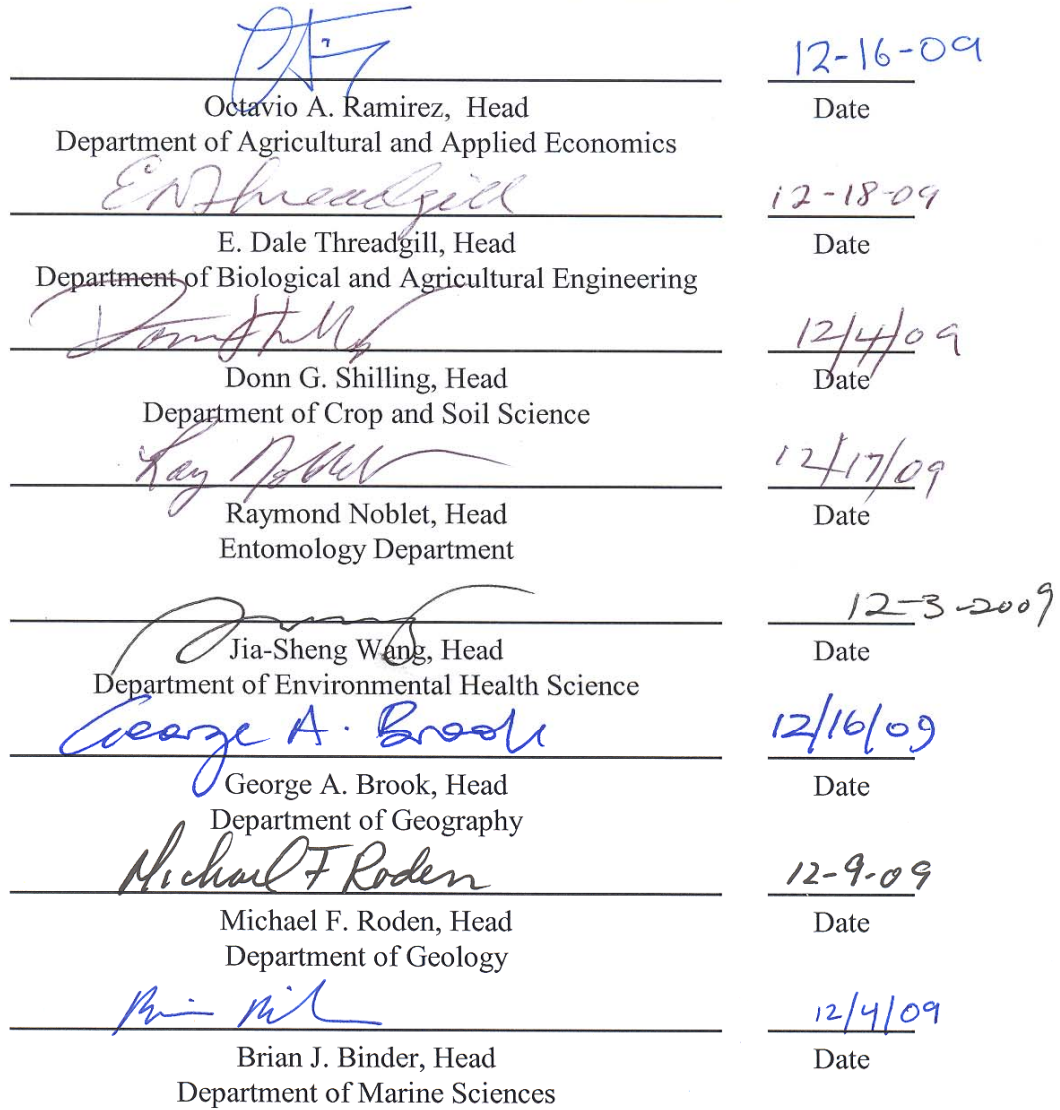 12-16-09
Octavio A. Ramirez, Head Date
Department of Agricultural and Applied Economics
EDThreadgill 12-18-09
E. Dale Threadgill, Head Date
Department of Biological and Agricultural Engineering
12/4/09
Donn G. Shilling, Head Date
Department of Crop and Soil Science
Ray Noblet 12/17/09
Raymond Noblet, Head Date
Entomology Department
12-3-2009
Jia-Sheng Wang, Head Date
Department of Environmental Health Science
George A. Brook 12/16/09
George A. Brook, Head Date
Department of Geography
Michael F Roden 12-9-09
Michael F. Roden, Head Date
Department of Geology
12/4/09
Brian J. Binder, Head Date
Department of Marine Sciences